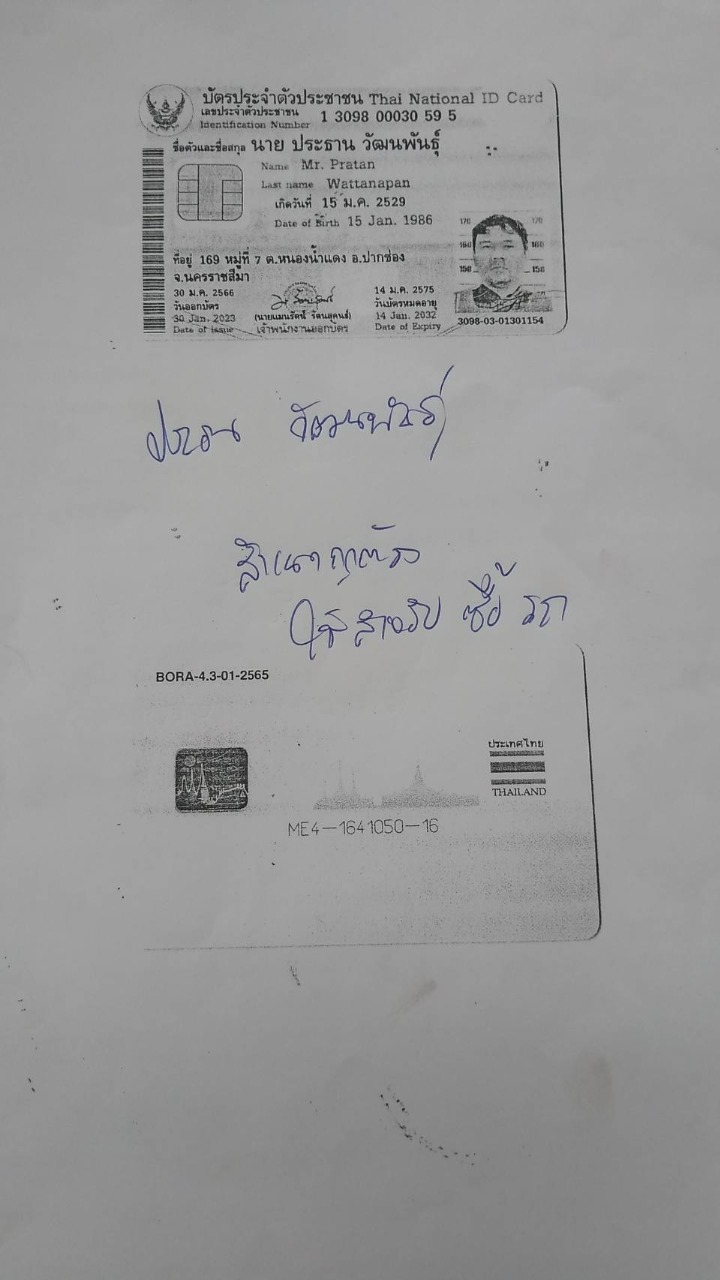 บัตรประจำตัวประชาชน Thai National ID Card
เลขประจำตัวประชาชน 1 3098 00030 59 5
Identification Number
ชื่อตัวและชื่อสกุล นาย ประธาน วัฒนพันธุ์
Name Mr. Pratan
Last name Wattanapan
เกิดวันที่ 15 ม.ค. 2529
Date of Birth 15 Jan. 1986
ที่อยู่ 169 หมู่ที่ 7 ต.หนองน้ำแดง อ.ปากช่อง
จ.นครราชสีมา
30 ม.ค. 2566
วันออกบัตร
30 Jan. 2023
Date of Issue
เจ้าพนักงานออกบัตร
14 ม.ค. 2575
วันบัตรหมดอายุ
14 Jan. 2032
Date of Expiry
170 170
160 160
150 150
3098-03-01301154
ประธาน วัฒนพันธุ์
สำเนาถูกต้อง
ใช้สำหรับ ซื้อ รถ
BORA-4.3-01-2565
ประเทศไทย
THAILAND
ME4-1641050-16